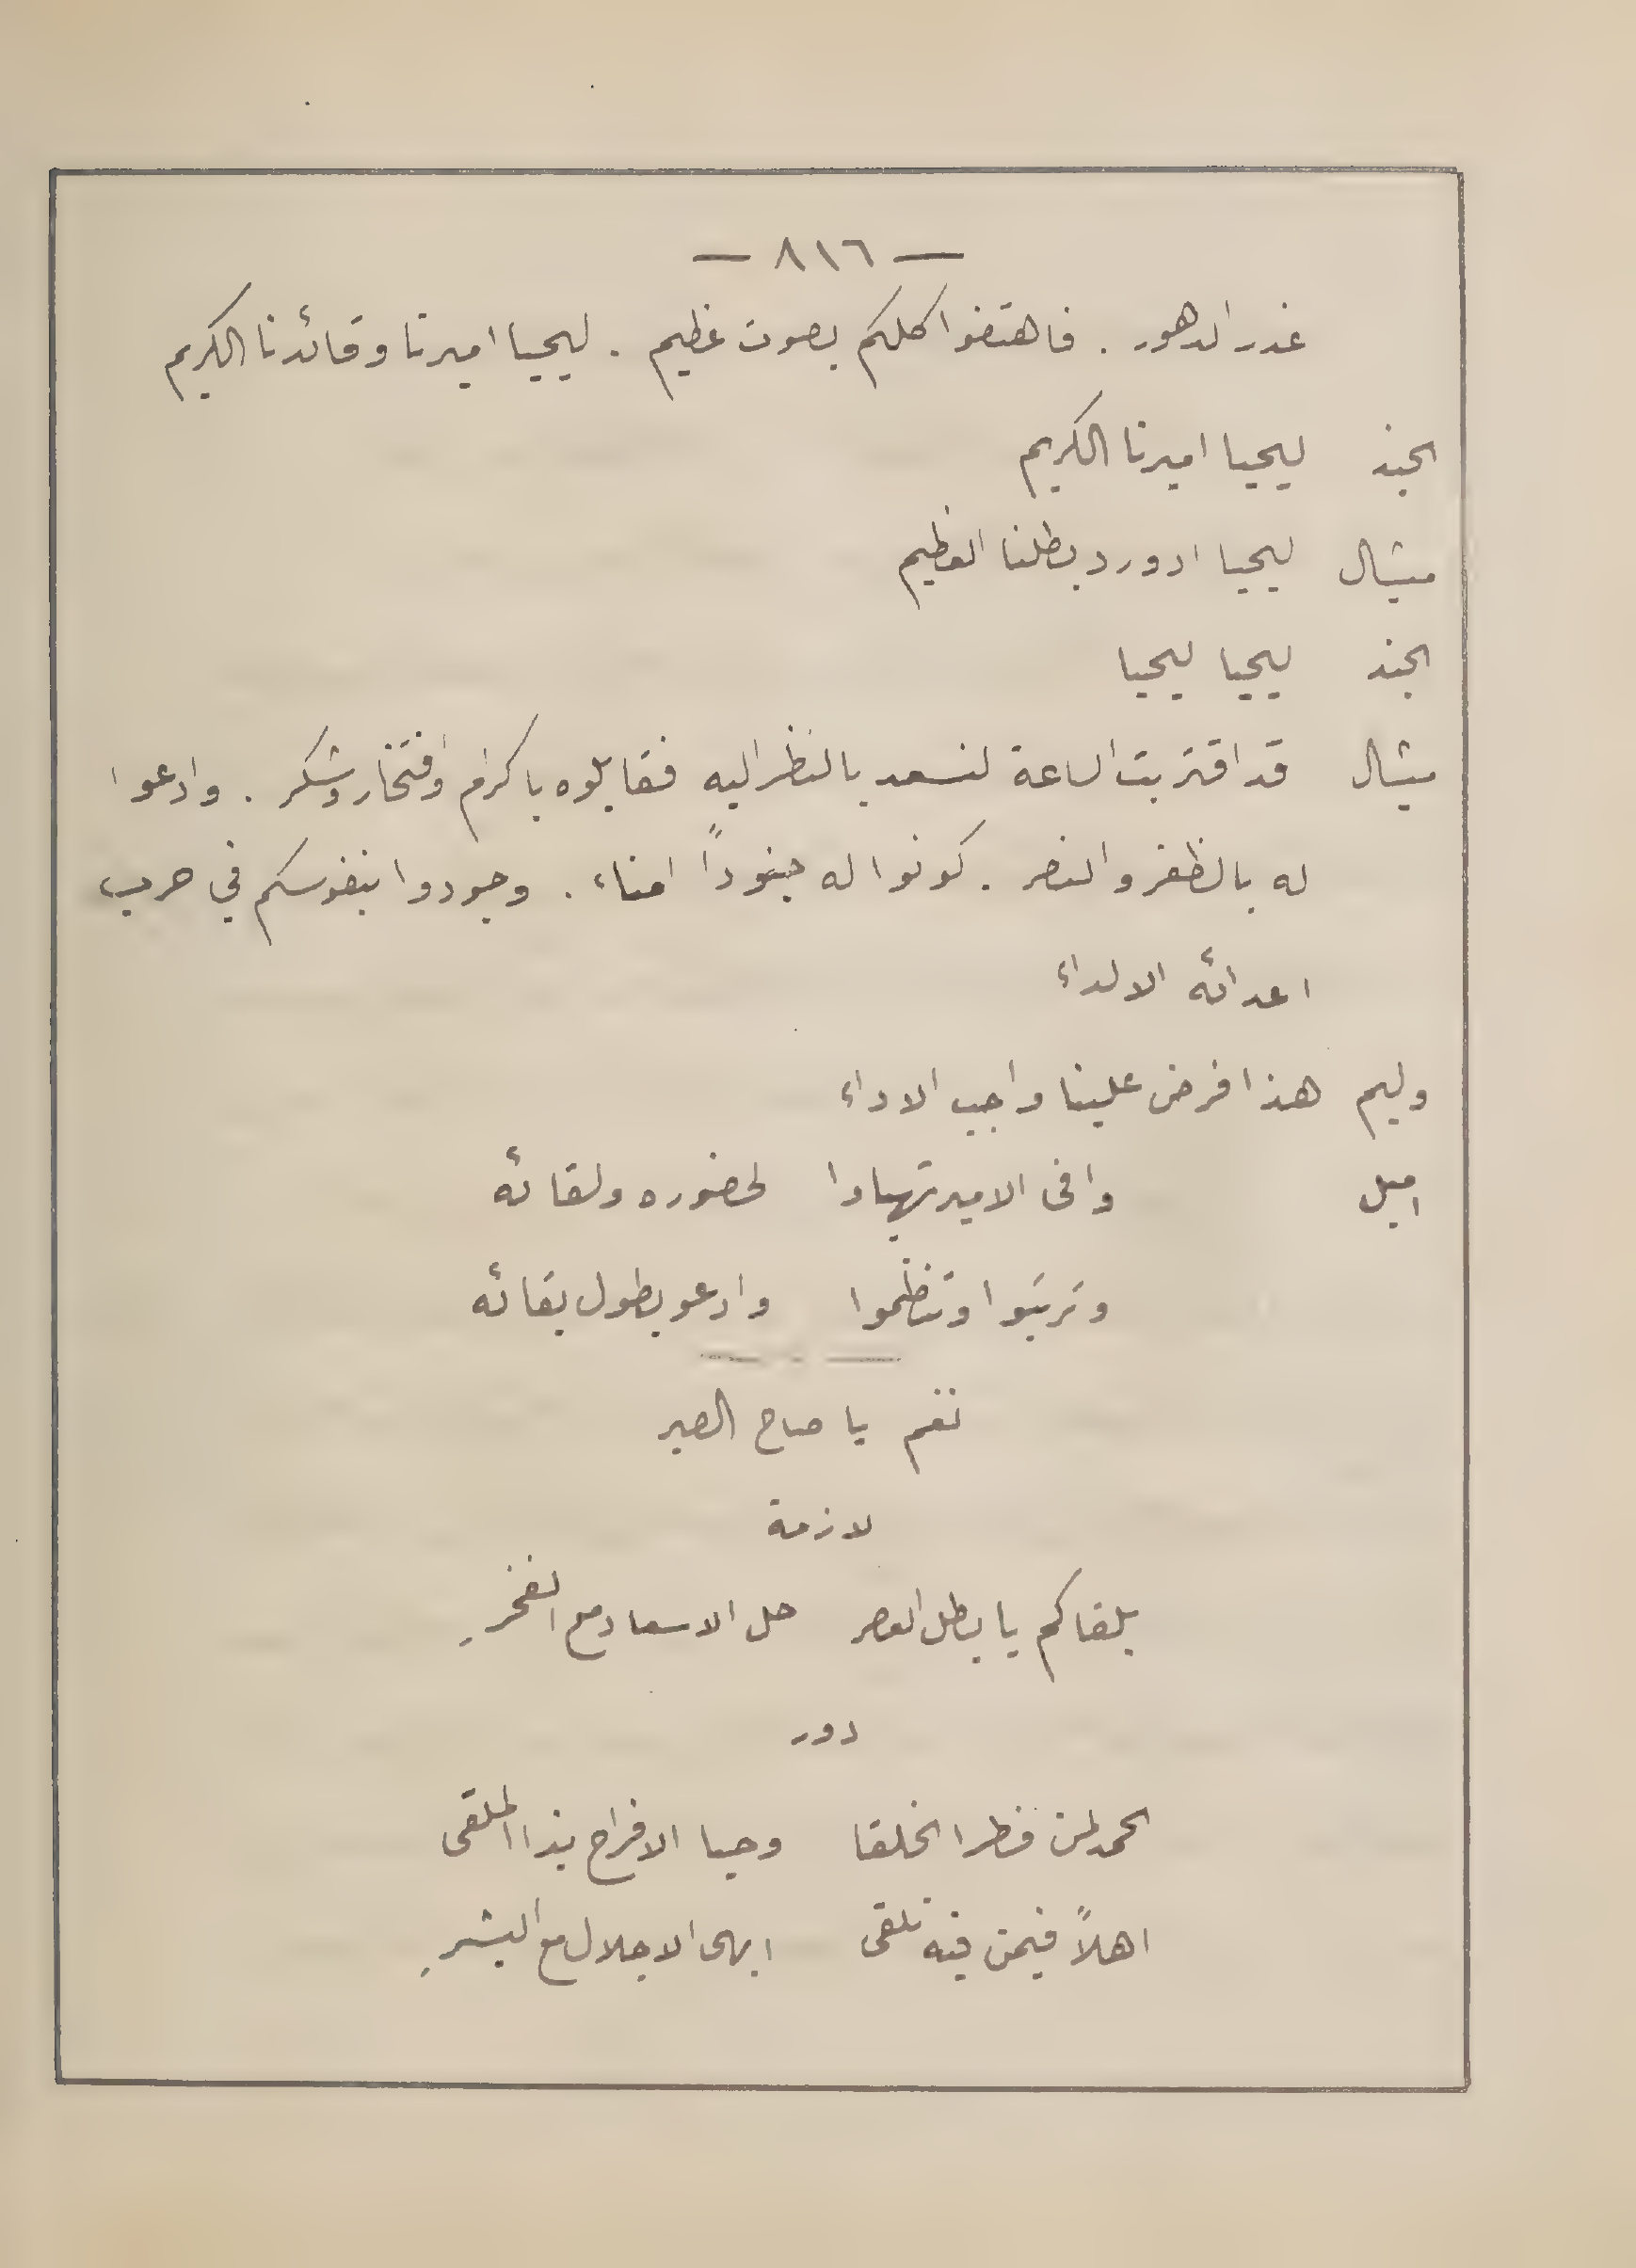 — ٨١٦ —
غدر الدهور . فاهتفوا كلكم بصوت عظيم . ليحيا اميرنا وقائدنا الكريم
الجند ليحيا اميرنا الكريم
ميشال ليحيا ادورد بطلنا العظيم
الجند ليحيا ليحيا
ميشال قد اقتربت الساعة لنسعد بالنظر اليه فقابلوه باكرام وافتخار وشكر . وادعوا
له بالظفر والنصر . كونوا له جنوداً امناء . وجودوا بنفوسكم في حرب
اعدائه الالداء
وليم هذا فرض علينا واجب الاداء
اميل وافى الامير تهيادا لحضوره ولقائه
وترتبوا وتنظموا وادعو بطول بقائه
نغم يا صاح الصبر
لازمة
بلقاكم يا بطل العصر حل الاسعاد مع الفخرِ
دور
الحمد لمن فطر الخلقا وحبا الافراح بذا الملقى
اهلاً فيمن فيه نلقى ابهى الاجلال مع البشرِ